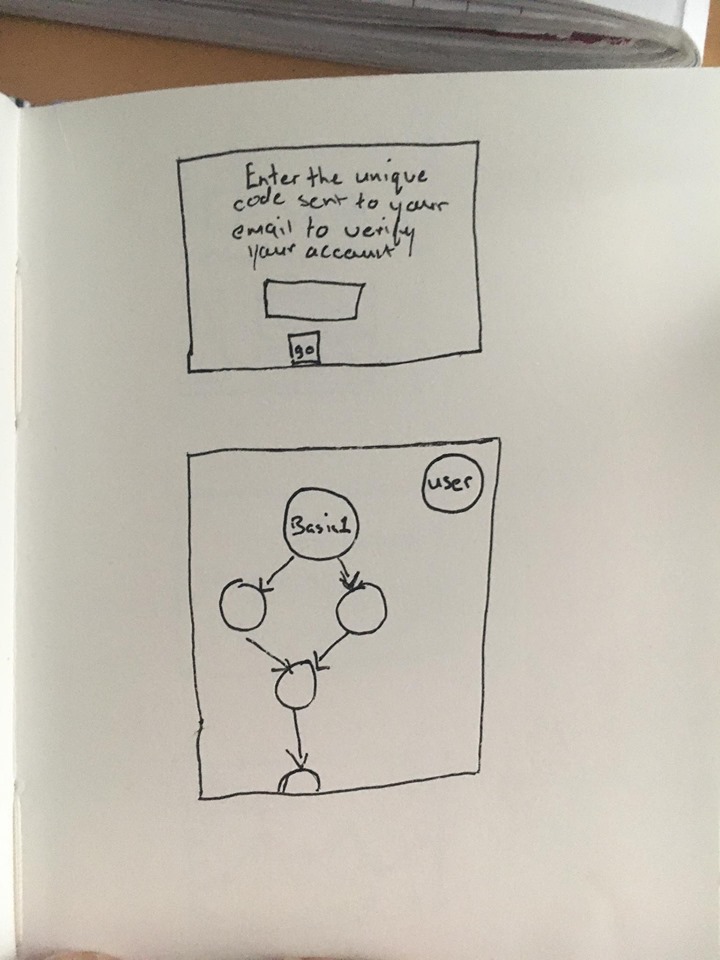 Enter the unique
code sent to your
email to verify
your account
go
user
Basic1